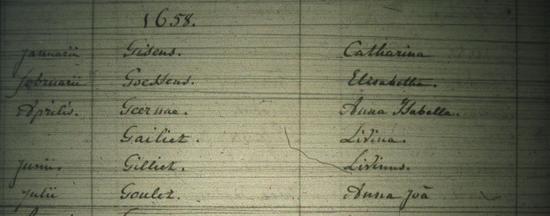 1658.
januarii Gisens. Catharina
februarii Goessens. Elisabetha.
Aprilis. Geernae. Anna Isabella.
Gailiet. Livina.
junii. Gilliet. Livinus.
julii Goulet. Anna joã